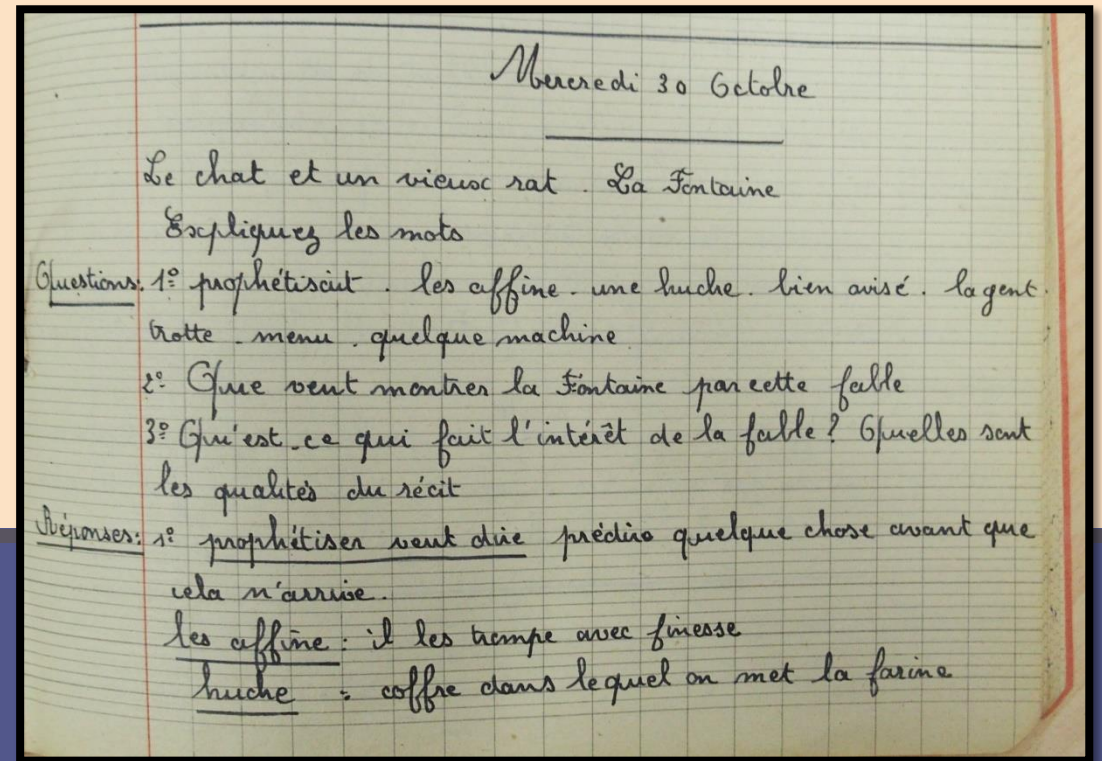 Mercredi 30 Octobre
Le chat et un vieux rat. La Fontaine
Expliquez les mots
Questions: 1º prophétisait. les affine. une huche. bien avisé. la gent.
trotte-menu. quelque machine
2º Que veut montrer la Fontaine par cette fable
3º Qu'est-ce qui fait l'intérêt de la fable? Quelles sont
les qualités du récit
Réponses: 1º prophétiser veut dire prédire quelque chose avant que
cela n'arrive.
les affine: il les trompe avec finesse
huche = coffre dans lequel on met la farine